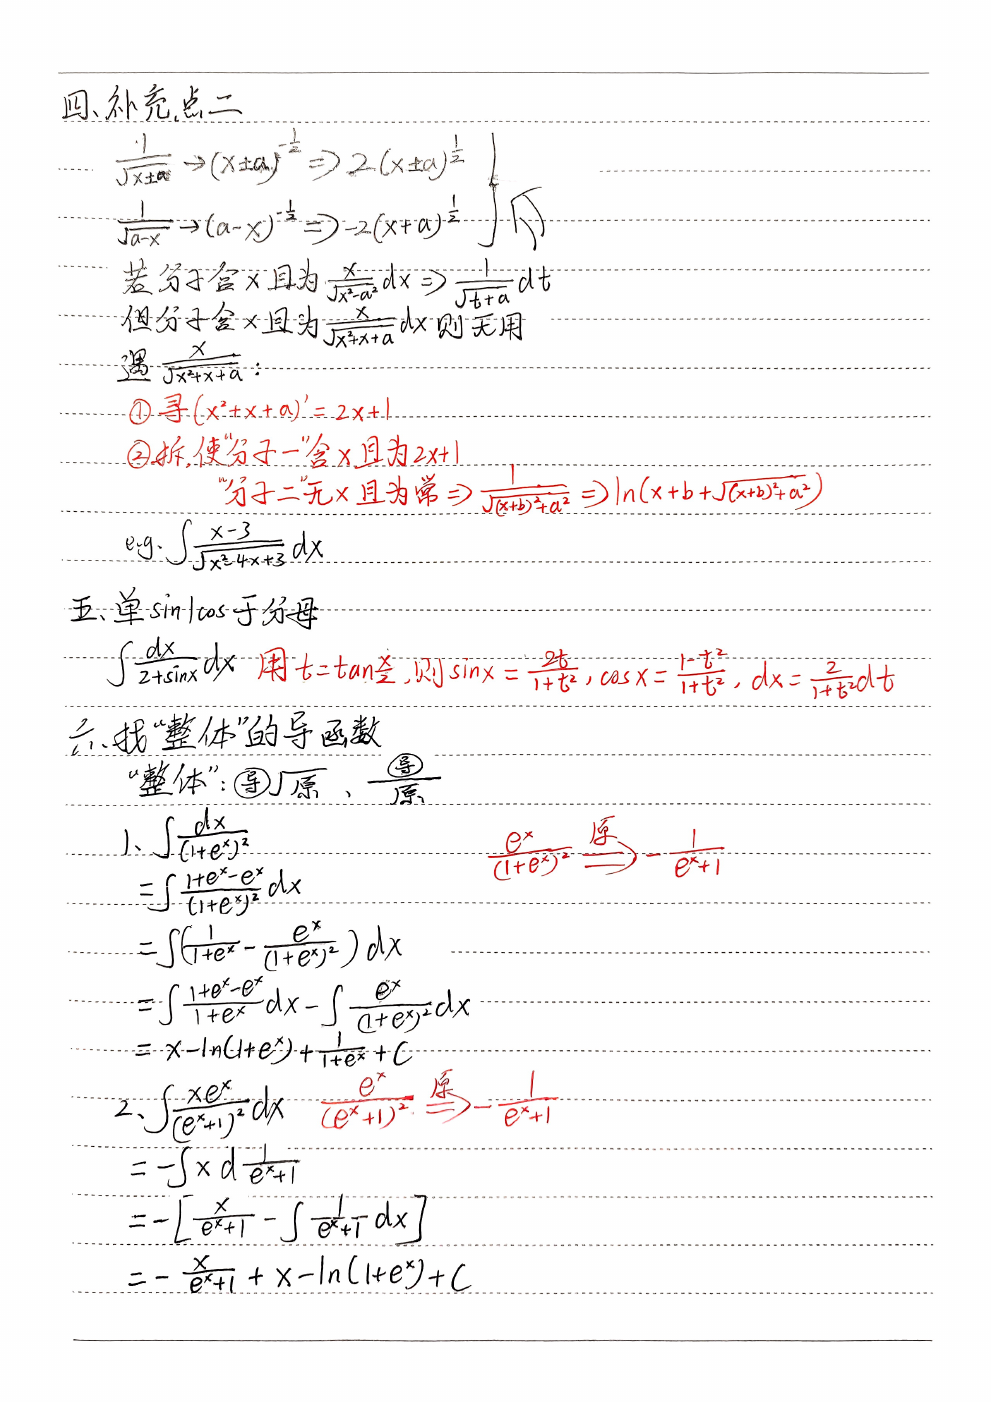 四、补充点二
1/√(x±a) → (x±a)^(-1/2) ⇒ 2(x±a)^(1/2)
1/√(a-x) → (a-x)^(-1/2) ⇒ -2(x+a)^(1/2)
若分子含x且为 x/√(x²-a²) dx ⇒ 1/√(t+a) dt
但分子含x且为 x/√(x²+x+a) dx 则无用
遇 x/√(x²+x+a) :
① 寻(x²+x+a)' = 2x+1
② 拆,使“分子一”含x且为2x+1
“分子二”无x且为常 ⇒ 1/√((x+b)²+a²) ⇒ ln(x+b+√((x+b)²+a²))
e.g. ∫ (x-3)/√(x²-4x+3) dx
五、单sin|cos于分母
∫ dx/(2+sinx) dx 用t=tan x/2,则sinx = 2t/(1+t²), cosx = (1-t²)/(1+t²), dx = 2/(1+t²) dt
六、找“整体”的导函数
“整体”: 导√原 、 导/原
1、∫ dx/(1+e^x)² e^x/(1+e^x)² 原⇒ - 1/(e^x+1)
= ∫ (1+e^x-e^x)/(1+e^x)² dx
= ∫(1/(1+e^x) - e^x/(1+e^x)²) dx
= ∫ (1+e^x-e^x)/(1+e^x) dx - ∫ e^x/(1+e^x)² dx
= x-ln(1+e^x)+ 1/(1+e^x) + C
2、∫ xe^x/(e^x+1)² dx e^x/(e^x+1)² 原⇒ - 1/(e^x+1)
= -∫ x d 1/(e^x+1)
= -[ x/(e^x+1) - ∫ 1/(e^x+1) dx ]
= - x/(e^x+1) + x - ln(1+e^x) + C